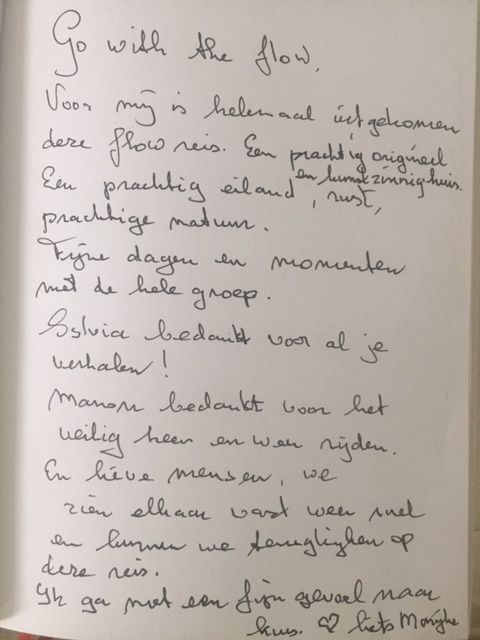 Go with the flow,
Voor mij is helemaal uitgekomen
deze flow reis. Een prachtig origineel
en kunstzinnig huis.
Een prachtig eiland, rust,
prachtige natuur.
Fijne dagen en momenten
met de hele groep.
Sylvia bedankt voor al je
verhalen!
Manon bedankt voor het
veilig heen en weer rijden.
En lieve mensen, we
zien elkaar vast weer snel
en kunnen we terugkijken op
deze reis.
Ik ga met een fijn gevoel naar
huis. ♡ liefs